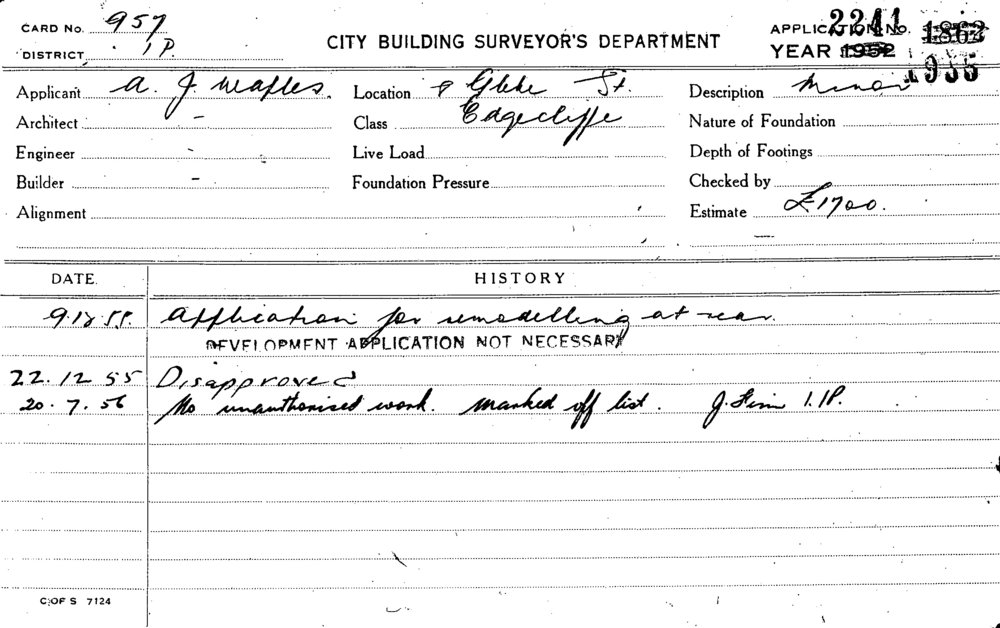 CARD No. 957
DISTRICT 1P.
CITY BUILDING SURVEYOR'S DEPARTMENT
APPLICATION No. 2241 1862
YEAR 1952 1955
Applicant A. J. Location 8 Glebe St. Description Minor
Architect - Class Edgecliffe Nature of Foundation
Engineer - Live Load Depth of Footings
Builder - Foundation Pressure Checked by
Alignment Estimate £1700.
DATE. HISTORY
9.12.55. Application for remodelling at rear.
DEVELOPMENT APPLICATION NOT NECESSARY
22.12.55 Disapproved
20.7.56 No unauthorised work. Marked off list. J. 1.1P.
C OF S 7124